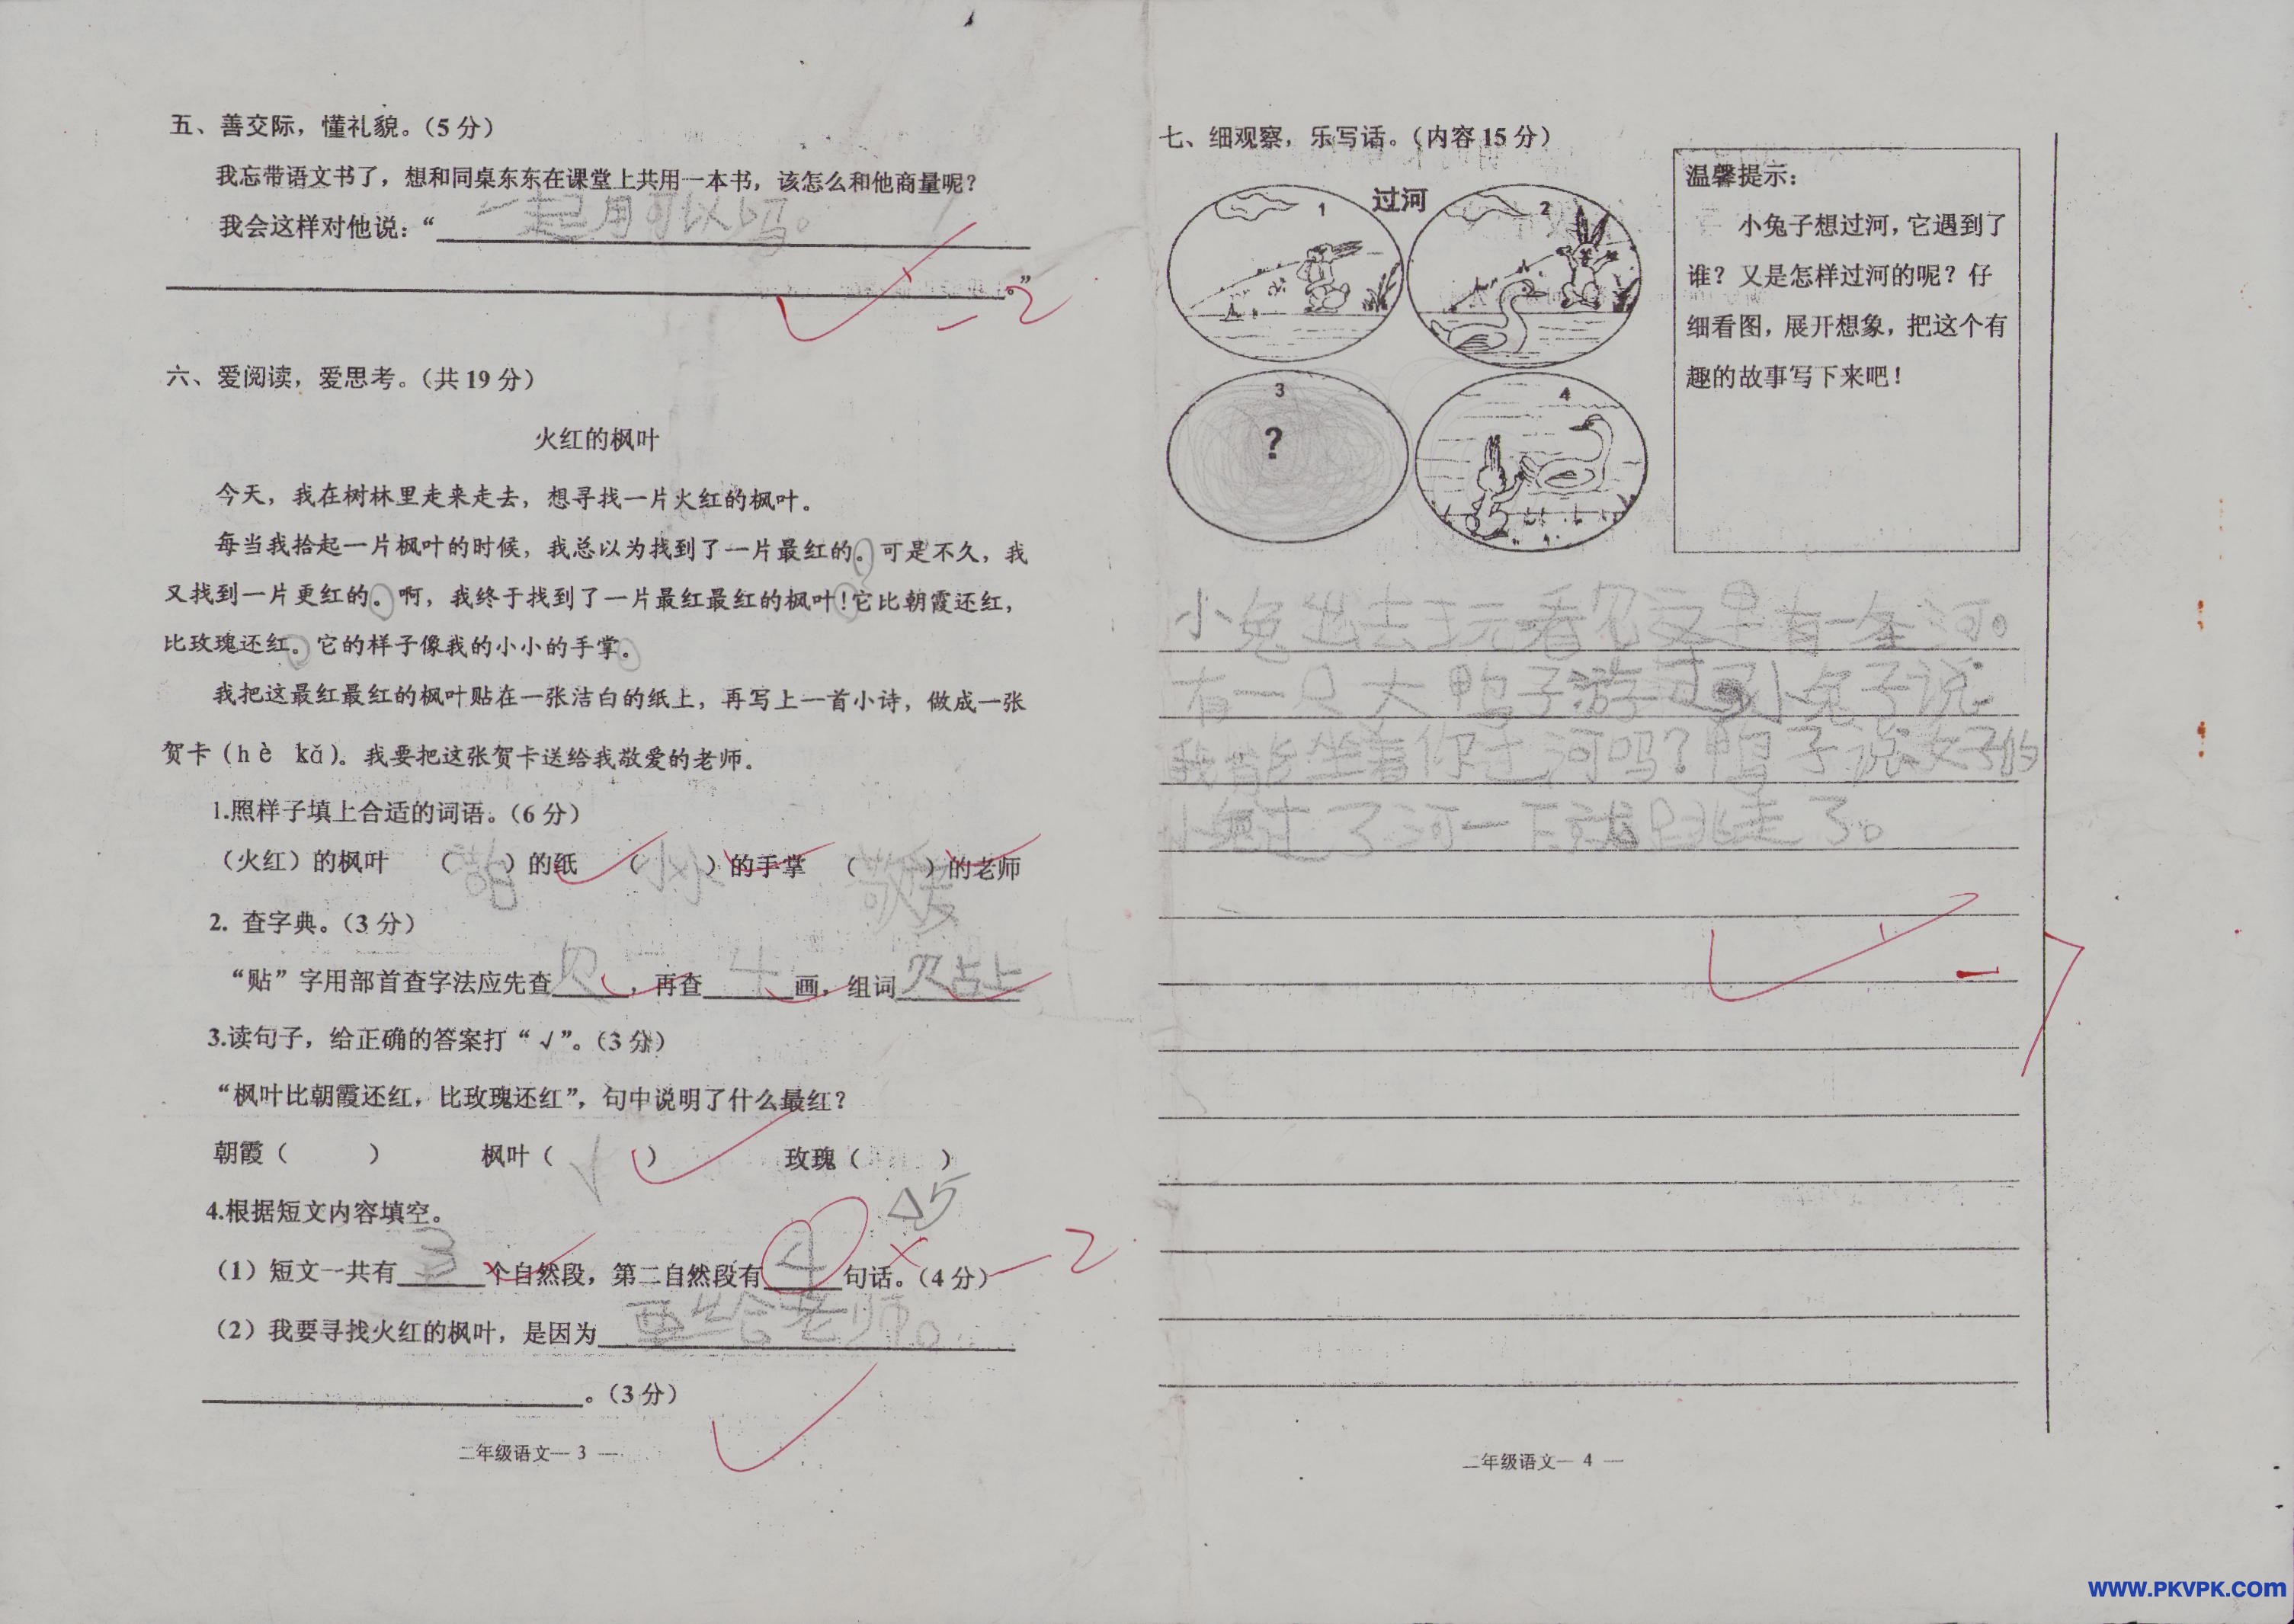 五、善交际，懂礼貌。（5 分）
我忘带语文书了，想和同桌东东在课堂上共用一本书，该怎么和他商量呢？
我会这样对他说：“一起用可以吗。
。”
-2
六、爱阅读，爱思考。（共 19 分）
火红的枫叶
今天，我在树林里走来走去，想寻找一片火红的枫叶。
每当我拾起一片枫叶的时候，我总以为找到了一片最红的。可是不久，我
又找到一片更红的。啊，我终于找到了一片最红最红的枫叶！它比朝霞还红，
比玫瑰还红。它的样子像我的小小的手掌。
我把这最红最红的枫叶贴在一张洁白的纸上，再写上一首小诗，做成一张
贺卡（hè kǎ）。我要把这张贺卡送给我敬爱的老师。
1.照样子填上合适的词语。（6 分）
（火红）的枫叶 （ ）的纸 （小小）的手掌 （敬爱）的老师
2. 查字典。（3 分）
“贴”字用部首查字法应先查贝，再查4画，组词贴上
3.读句子，给正确的答案打“√”。（3 分）
“枫叶比朝霞还红，比玫瑰还红”，句中说明了什么最红？
朝霞（ ） 枫叶（√） 玫瑰（ ）
4.根据短文内容填空。
△5
（1）短文一共有3个自然段，第二自然段有4句话。（4 分） -2
（2）我要寻找火红的枫叶，是因为要给老师。
。（3 分）
二年级语文— 3 —
七、细观察，乐写话。（内容 15 分）
过河
1
2
3
?
4
温馨提示：
小兔子想过河，它遇到了
谁？又是怎样过河的呢？仔
细看图，展开想象，把这个有
趣的故事写下来吧！
小兔出去玩看见这里有一条河。
有一只大鸭子游过 小兔子说:
我能坐着你过河吗？鸭子说好的
小兔过了河一下就跳走了。
-7
二年级语文— 4 —
www.PKVPK.com